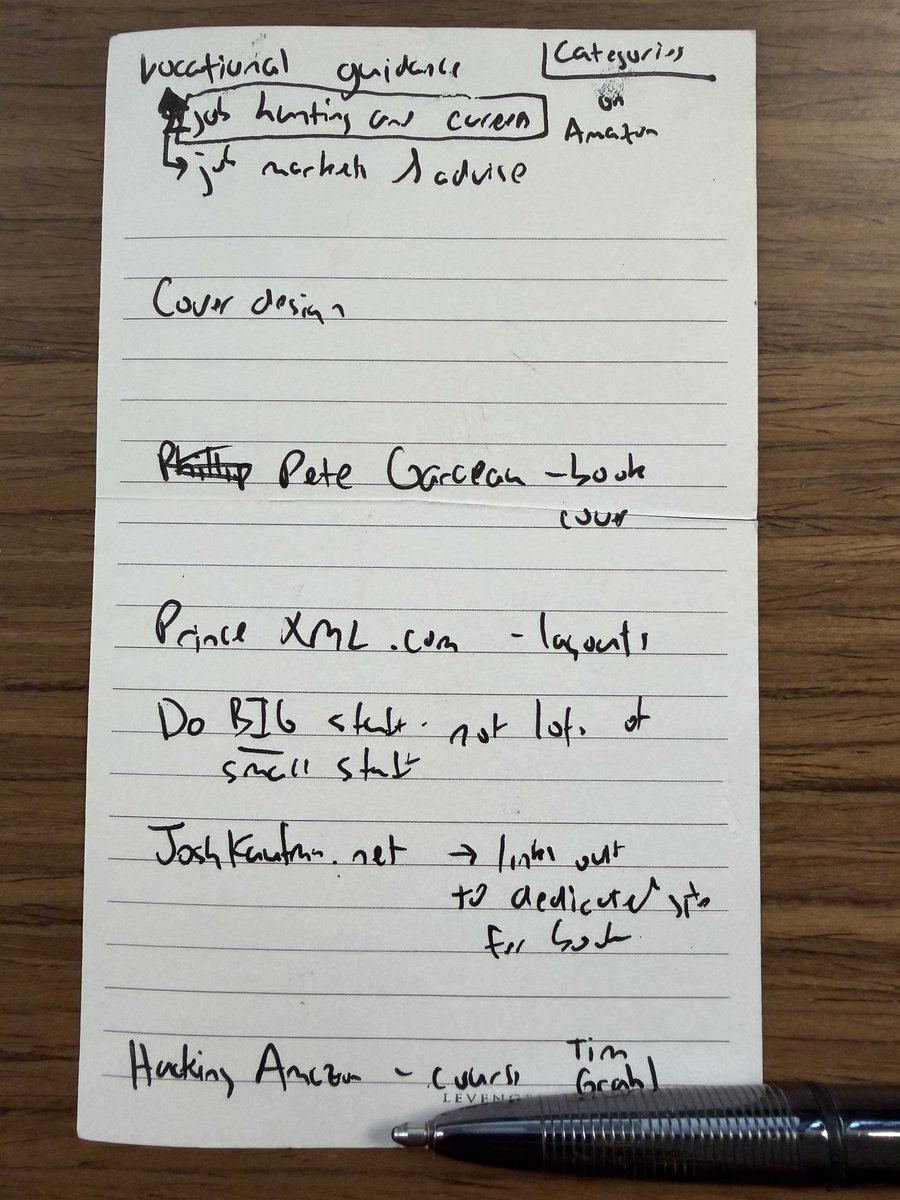 vocational guidance
Categories
on
Amazon
job hunting and careers
job markets & advise
Cover design
Phillip Pete Garceau - book
cover
Prince XML.com - layouts
Do BIG stuff. not lots of
small stuff
JoshKaufman.net → links out
to dedicated site
for book
Hacking Amazon - course Tim
Grahl
LEVENGE